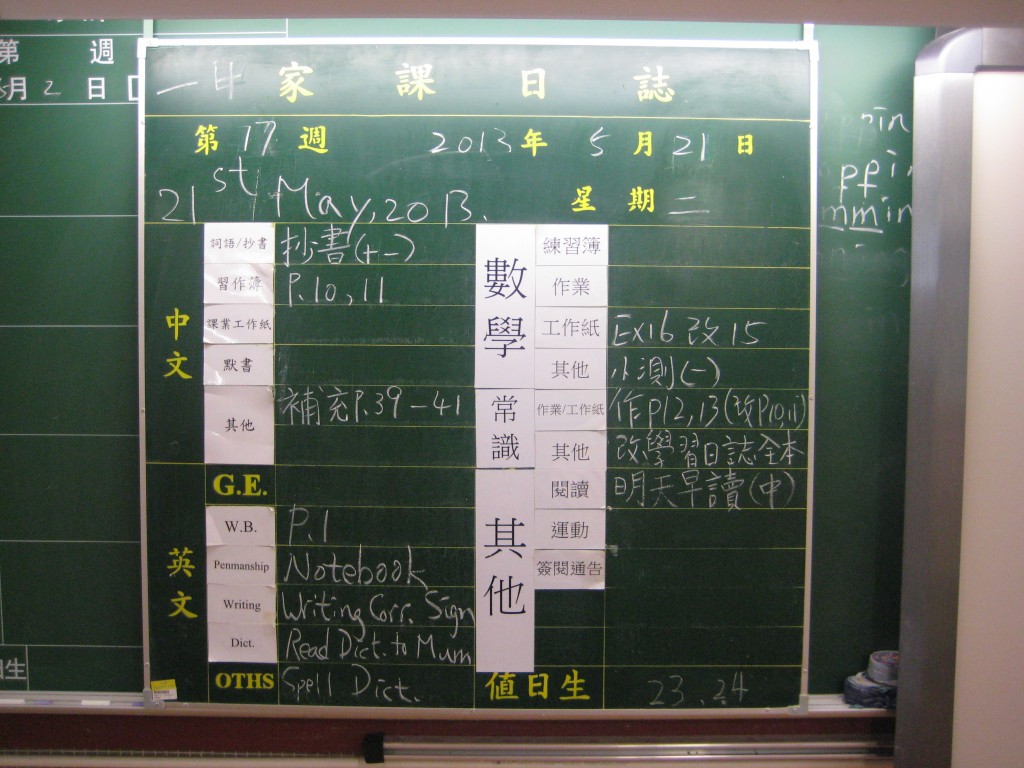 第 週
月 2 日
一甲 家課日誌
第 17 週 2013 年 5 月 21 日
21st May, 2013. 星期二
中文
詞語/抄書 抄書(十一)
習作簿 P.10, 11
課業工作紙
默書
其他 補充P.39-41
英文
G.E.
W.B. P.1
Penmanship Notebook
Writing Writing Corr. Sign
Dict. Read Dict. to Mum
OTHS Spell Dict.
數學
練習簿
作業
工作紙 Ex16 改15
其他 小測(一)
常識
作業/工作紙 作P12, 13(改P10,11)
其他 改學習日誌全本
其他
閱讀 明天早讀(中)
運動
簽閱通告
值日生 23, 24